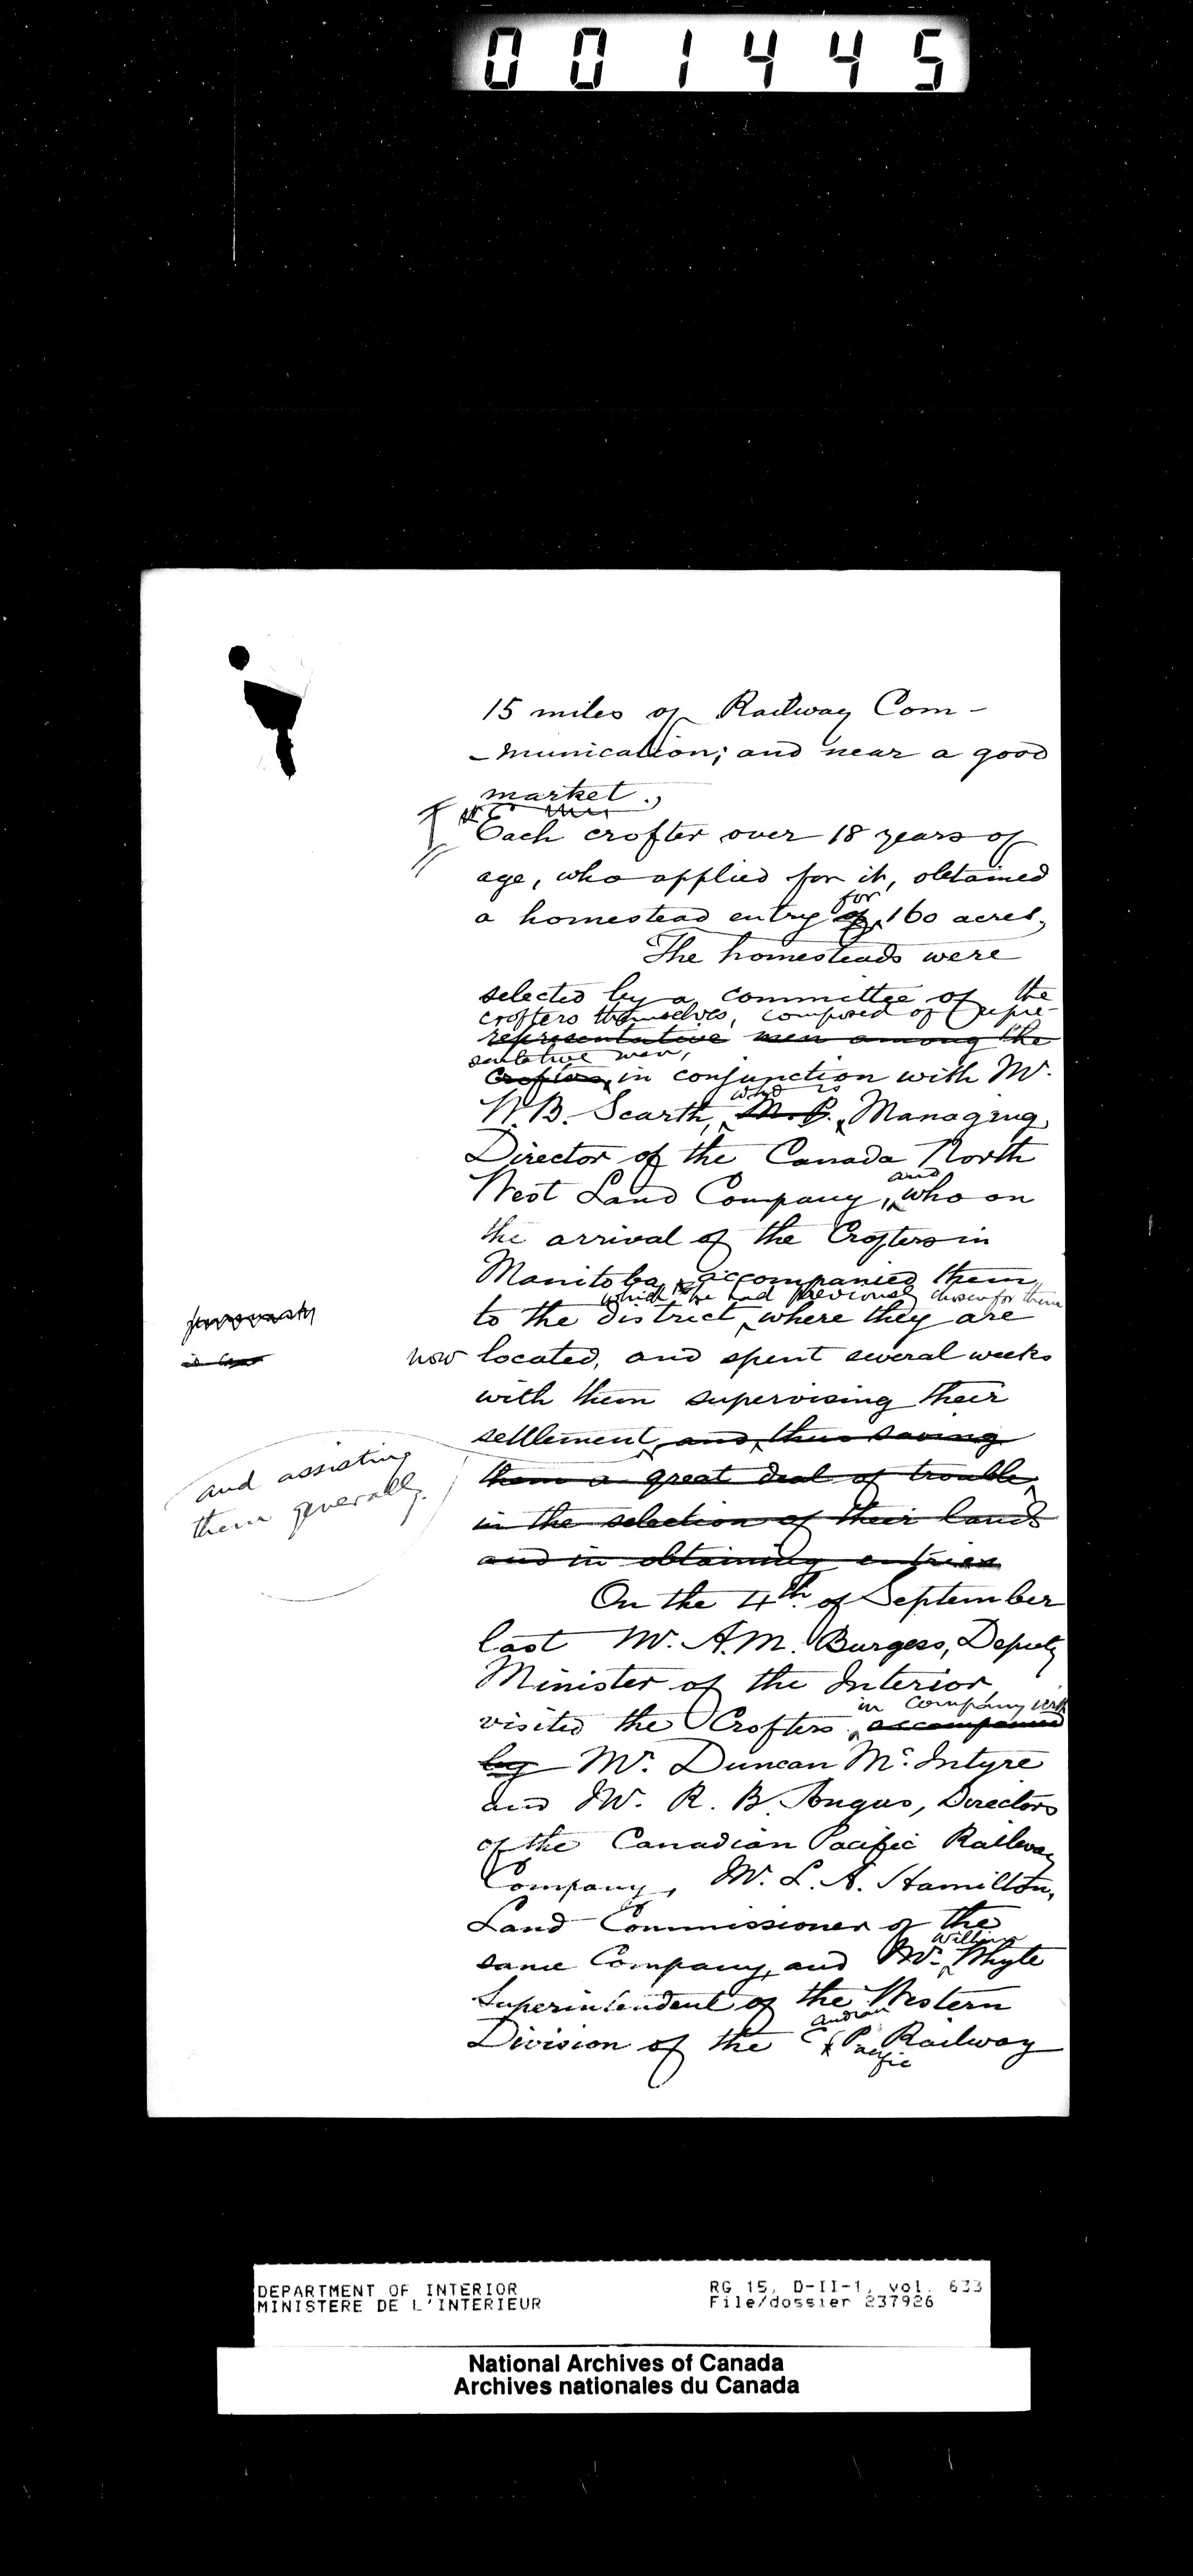 001445
15 miles of Railway Com-
-munication; and near a good
market.,
Each crofter over 18 years of
age, who applied for it, obtained
for
a homestead entry of 160 acres,
The homesteads were
selected by a committee of the
crofters themselves, composed of repre-
representative men among the
sentative men,
Crofters, in conjunction with Mr.
who is
W.B. Scarth, M.P. Managing
Director of the Canada North
and
West Land Company, who on
the arrival of the Crofters in
Manitoba, accompanied them
which he had previously chosen for them
to the district where they are
now located, and spent several weeks
with them supervising their
settlement, and thus saving
and assisting
them generally.
them a great deal of trouble,
in the selection of their lands
and in obtaining entries
On the 4th. of September
last Mr. A.M. Burgess, Deputy
Minister of the Interior
in company with
visited the Crofters accompanied
by Mr. Duncan Mc.Intyre
and Mr. R. B. Angus, Directors
of the Canadian Pacific Railway
Company, Mr. L. A. Hamilton,
Land Commissioner of the
William
same Company, and Mr. Whyte
Superintendent of the Western
anadian
Division of the C. P. Railway
acific
DEPARTMENT OF INTERIOR
MINISTERE DE L'INTERIEUR
RG 15, D-II-1, vol. 633
File/dossier 237926
National Archives of Canada
Archives nationales du Canada